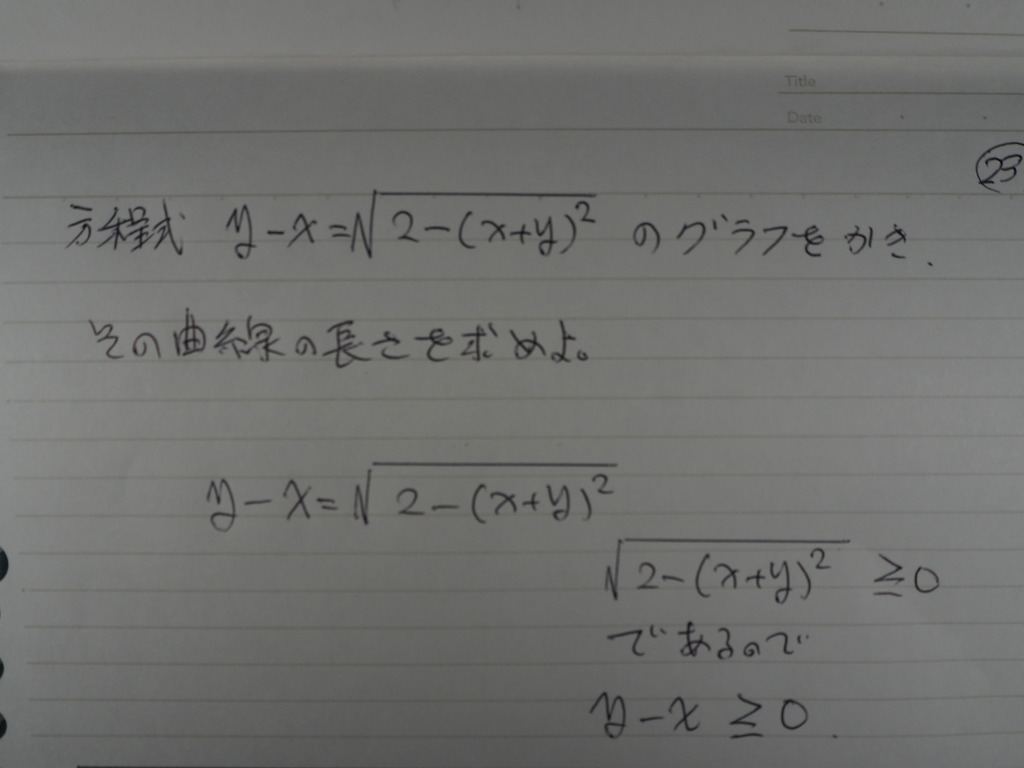 Title
Date
㉓
方程式 y-x=√2-(x+y)² のグラフをかき.
その曲線の長さを求めよ。
y-x=√2-(x+y)²
√2-(x+y)² ≧0
であるので
y-x ≧0.